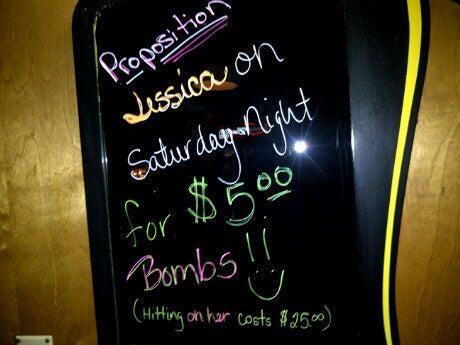 Proposition
Jessica on
Saturday Night
for $5.00
Bombs !! 
(Hitting on her costs $25.00)